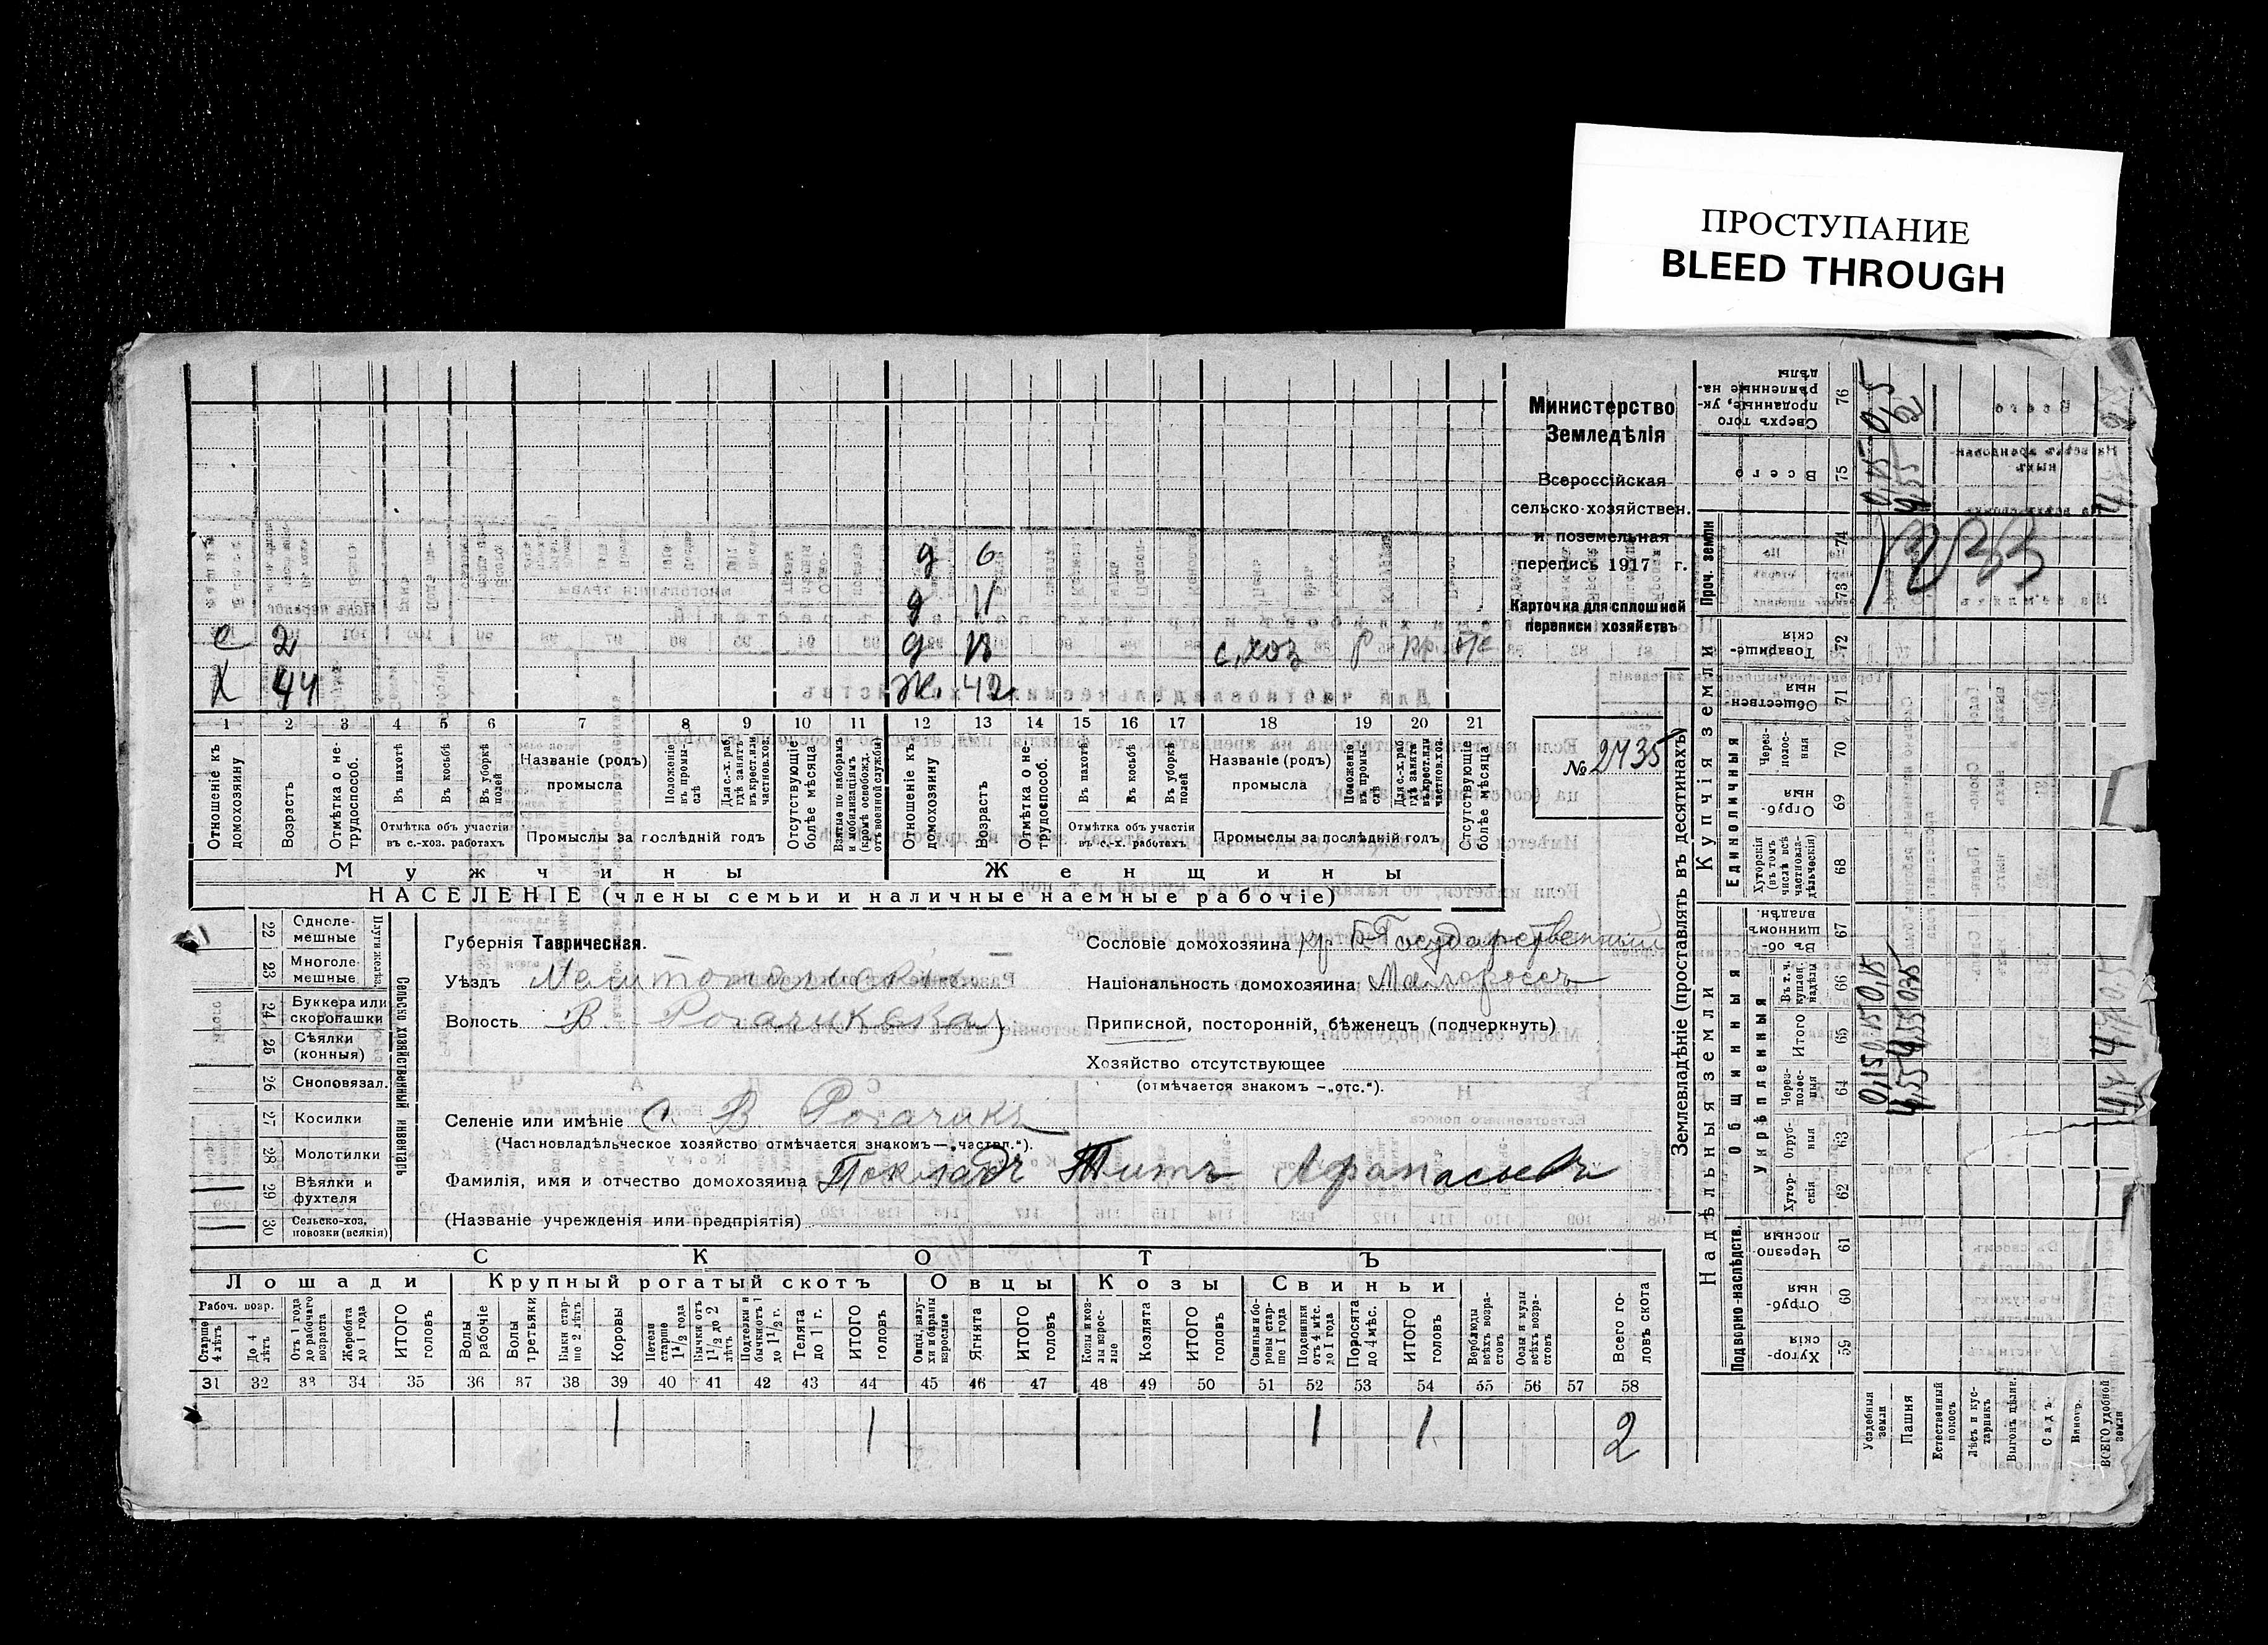 ПРОСТУПАНИЕ
BLEED THROUGH
Министерство
Земледѣлія
Всероссійская
сельско-хозяйствен.
и поземельная
перепись 1917 г.
Карточка для сплошной
переписи хозяйствъ
№ 2435
д 6
д 11
с 2 д 13 с.хоз Р
Х 44 Ж. 42
1 2 3 4 5 6 7 8 9 10 11 12 13 14 15 16 17 18 19 20 21
Отношеніе къ домохозяину
Возрастъ
Отмѣтка о не-трудоспособ.
Въ пахотѣ
Въ косьбѣ
Въ уборкѣ полей
Отмѣтка объ участіи
въ с.-хоз. работахъ
Названіе (родъ)
промысла
Положеніе въ промы-слѣ
Для с.-х. раб. гдѣ занятъ въ крест. или частнов. хоз.
Промыслы за послѣдній годъ
Отсутствующіе болѣе мѣсяца
Взятые по наборамъ и мобилизаціямъ (кромѣ освобожд. отъ военной службы)
Отношеніе къ домохозяину
Возрастъ
Отмѣтка о не-трудоспособ.
Въ пахотѣ
Въ косьбѣ
Въ уборкѣ полей
Отмѣтка объ участіи
въ с.-х. работахъ
Названіе (родъ)
промысла
Положеніе въ промы-слѣ
Для с.-х. раб. гдѣ занята въ крест. или частнов. хоз.
Промыслы за послѣдній годъ
Отсутствующіе болѣе мѣсяца
Мужчины Женщины
НАСЕЛЕНІЕ (члены семьи и наличные наемные рабочіе)
22 Одноле-мешные
23 Многоле-мешные
Плуги желѣз.
24 Буккера или скоропашки
25 Сѣялки (конныя)
26 Сноповязал.
27 Косилки
28 Молотилки
29 Вѣялки и фухтеля
30 Сельско-хоз. повозки (всякія)
Сельско хозяйственный инвентарь
Губернія Таврическая.
Уѣздъ Мелитопольскій
Волость В Рогачикская
Селеніе или имѣніе С. В Рогачикъ
(Частновладѣльческое хозяйство отмѣчается знакомъ—„частвл.“).
Фамилія, имя и отчество домохозяина Покладъ Титъ Афанасьевъ
(Названіе учрежденія или предпріятія)
Сословіе домохозяина кр. б. Государственный
Національность домохозяина Малороссъ
Приписной, посторонній, бѣженецъ (подчеркнуть)
Хозяйство отсутствующее
(отмѣчается знакомъ —„отс.“).
СКОТЪ
Лошади Крупный рогатый скотъ Овцы Козы Свиньи
Рабоч. возр.
Старше 4 лѣтъ
До 4 лѣтъ
Отъ 1 года до рабочаго возраста
Жеребята до 1 года
ИТОГО головъ
Волы рабочіе
Волы третьяки
Быки стар-ше 2 лѣтъ
Коровы
Нетели старше 1½ года
Бычки отъ 1½ до 2 лѣтъ
Подтелки и бычки отъ 1 до 1½ г.
Телята до 1 г.
ИТОГО головъ
Овцы, валу-хи и бараны взрослые
Ягнята
ИТОГО головъ
Козы и коз-лы взрос-лые
Козлята
ИТОГО головъ
Свиньи и бо-ровы стар-ше 1 года
Подсвинки отъ 4 мѣс. до 1 года
Поросята до 4 мѣс.
ИТОГО головъ
Верблюды всѣхъ возра-стовъ
Ослы и мулы всѣхъ возра-стовъ
Всего го-ловъ скота
31 32 33 34 35 36 37 38 39 40 41 42 43 44 45 46 47 48 49 50 51 52 53 54 55 56 57 58
1 1 1 1 2
Землевладѣніе (проставлять въ десятинахъ)
Надѣльныя земли Купчія земли Проч. земли
Подворно-наслѣдств. Общинныя Единоличныя
Укрѣпленныя
Хутор-скія 59
Отруб-ныя 60
Черезпо-лосныя 61
Хутор-скія 62
Отруб-ныя 63
Через-полос-ныя 64
Итого 65
Въ т. ч. куплен. надѣлы 66
Въ об-щинномъ владѣн. 67
Хуторскія (въ томъ числѣ всѣ частновла-дѣльческія) 68
Отруб-ныя 69
Через-полос-ныя 70
Обществен-ныя 71
Товарище-скія 72
73
74
Всего 75
Сверхъ того проданные, ук-рѣпленные на-дѣлы 76
Усадебныя земли 0,15 0,15 0,15 0,15
Пашня 4,55 4,55 0,35 4,55
Естественный покосъ
Лѣсъ и кус-тарникъ
Выгонъ дѣлим.
Садъ
Виногр.
ВСЕГО удобной земли